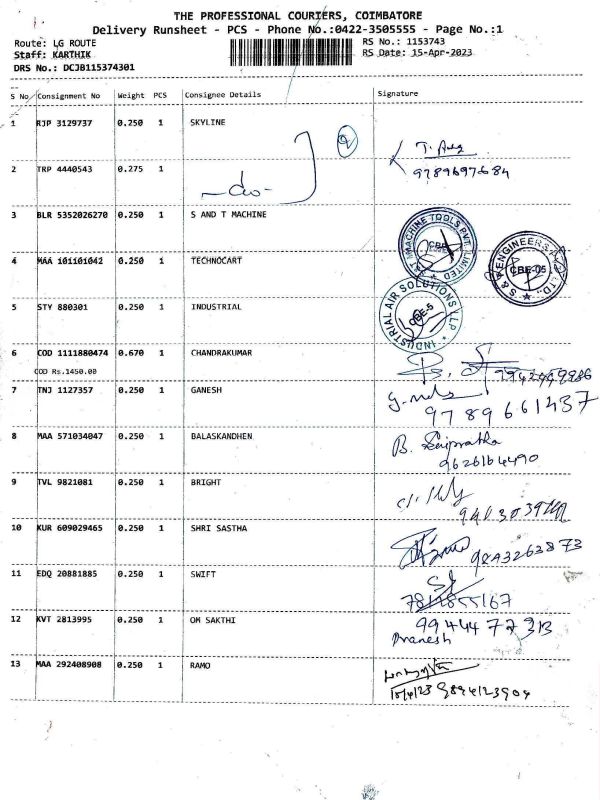 THE PROFESSIONAL COURIERS, COIMBATORE
Delivery Runsheet - PCS - Phone No.:0422-3505555 - Page No.:1
Route: LG ROUTE RS No.: 1153743
Staff: KARTHIK RS Date: 15-Apr-2023
DRS No.: DCJB115374301
S No Consignment No Weight PCS Consignee Details Signature
1 RJP 3129737 0.250 1 SKYLINE
2 TRP 4440543 0.275 1 -do- 9789697684
3 BLR 5352026270 0.250 1 S AND T MACHINE
S&T MACHINE TOOLS PVT. LIMITED CBE
4 MAA 101101042 0.250 1 TECHNOCART
ENGINEERS CBE-05
5 STY 880301 0.250 1 INDUSTRIAL
INDUSTRIAL AIR SOLUTIONS LLP CBE-5
6 COD 1111880474 0.670 1 CHANDRAKUMAR
COD Rs.1450.00
7 TNJ 1127357 0.250 1 GANESH
9789661437
8 MAA 571034047 0.250 1 BALASKANDHEN B.
9626164490
9 TVL 9821081 0.250 1 BRIGHT
10 KUR 609029465 0.250 1 SHRI SASTHA 9843263873
11 EDQ 20881885 0.250 1 SWIFT
12 KVT 2813995 0.250 1 OM SAKTHI 9944477313
Pranesh
13 MAA 292408908 0.250 1 RAMO
15/4/23 9894123904